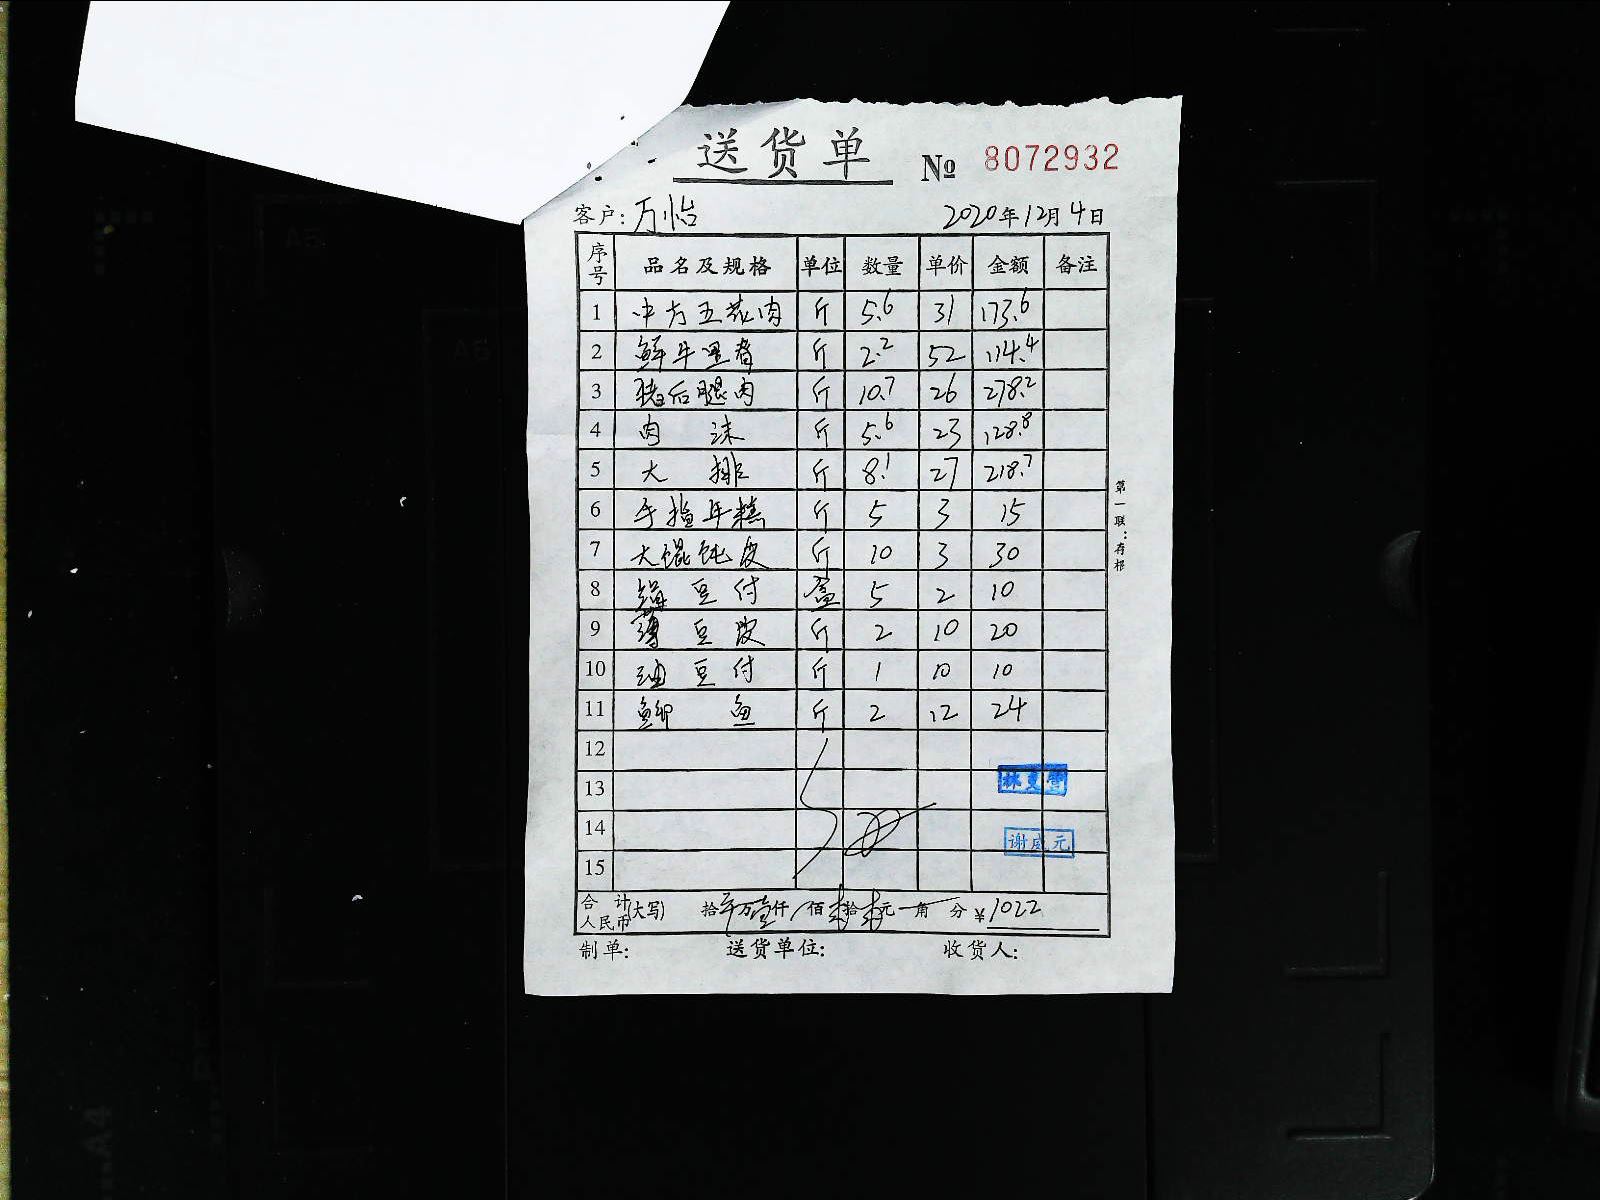 送货单 № 8072932
客户: 万怡 2020年12月4日
序号 品名及规格 单位 数量 单价 金额 备注
1 中方五花肉 斤 5.6 31 173.6
2 鲜牛里脊 斤 2.2 52 114.4
3 猪后腿肉 斤 10.7 26 278.2
4 肉沫 斤 5.6 23 128.8
5 大排 斤 8.1 27 218.7
6 手指年糕 斤 5 3 15
7 大馄饨皮 斤 10 3 30
8 豆付 盒 5 2 10
9 薄豆皮 斤 2 10 20
10 油豆付 斤 1 10 10
11 鲫鱼 斤 2 12 24
12
13
林 雪
14
谢盛元
15
合计人民币(大写) 拾 万壹仟 佰 拾 元 角 分 ¥1022
制单: 送货单位: 收货人:
第一联:存根
A5
A5
A4